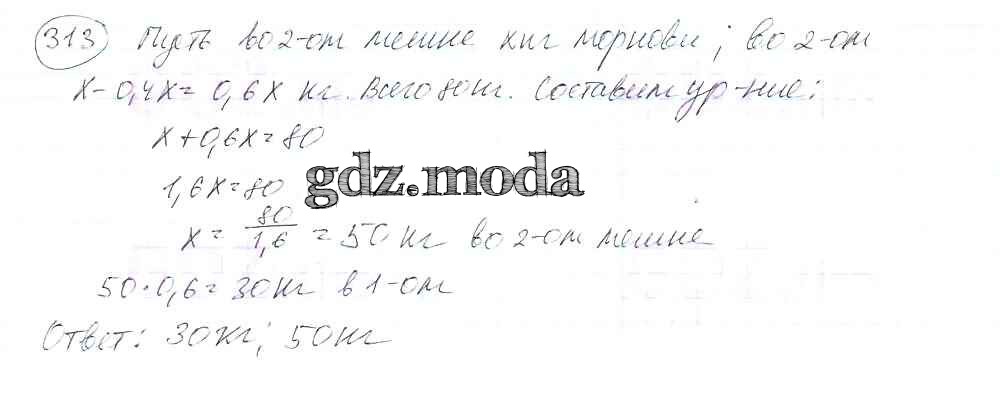 313 Пусть во 2-ом мешке х кг моркови; во 2-ом
х-0,4х= 0,6х кг. Всего 80 кг. Составим ур-ние:
х+0,6х=80
1,6х=80
gdz.moda
х = 80/1,6 = 50 кг во 2-ом мешке
50·0,6=30кг в 1-ом
Ответ: 30кг; 50кг